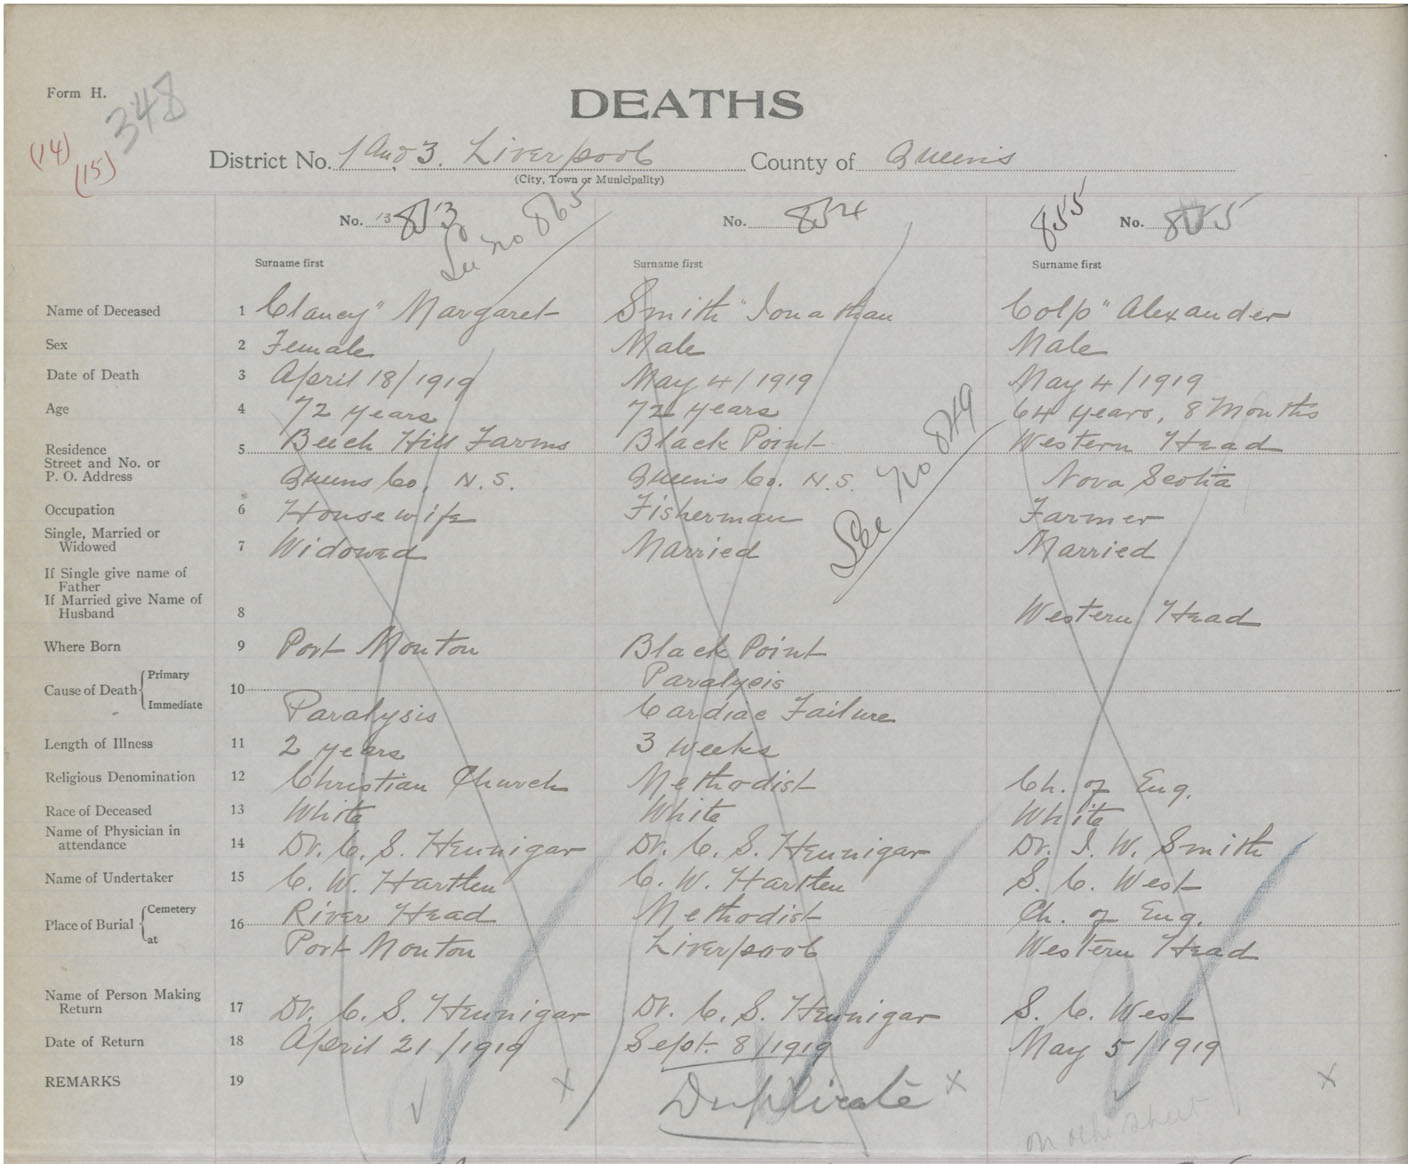 Form H.
348
(14)
(15)
DEATHS
District No. 1 and 3. Liverpool County of Queens
(City, Town or Municipality)
No. 853 No. 854 855 No. 855
See no 865
Surname first Surname first Surname first
Name of Deceased 1 Clancy" Margaret Smith" Jonathan Colp" Alexander
Sex 2 Female Male Male
Date of Death 3 April 18/1919 May 4/1919 May 4/1919
Age 4 72 years 72 years 64 years, 8 Months
Residence
Street and No. or
P. O. Address
5 Beech Hill Farms Black Point Western Head
Queens Co. N.S. Queens Co. N.S. Nova Scotia
See No 849
Occupation 6 Housewife Fisherman Farmer
Single, Married or
Widowed 7 Widowed Married Married
If Single give name of
Father
If Married give Name of
Husband 8 Western Head
Where Born 9 Port Monton Black Point
Cause of Death Primary 10 Paralysis
Immediate Paralysis Cardiac Failure
Length of Illness 11 2 years 3 weeks
Religious Denomination 12 Christian Church Methodist Ch. of Eng.
Race of Deceased 13 White White White
Name of Physician in
attendance 14 Dr. C. S. Hennigar Dr. C. S. Hennigar Dr. J. W. Smith
Name of Undertaker 15 C. W. Hartlen C. W. Hartlen S. C. West
Place of Burial Cemetery 16 River Head Methodist Ch. of Eng.
at Port Monton Liverpool Western Head
Name of Person Making
Return 17 Dr. C. S. Hennigar Dr. C. S. Hennigar S. C. West
Date of Return 18 April 21/1919 Sept. 8/1919 May 5/1919
REMARKS 19 x Duplicate x x
on other sheet